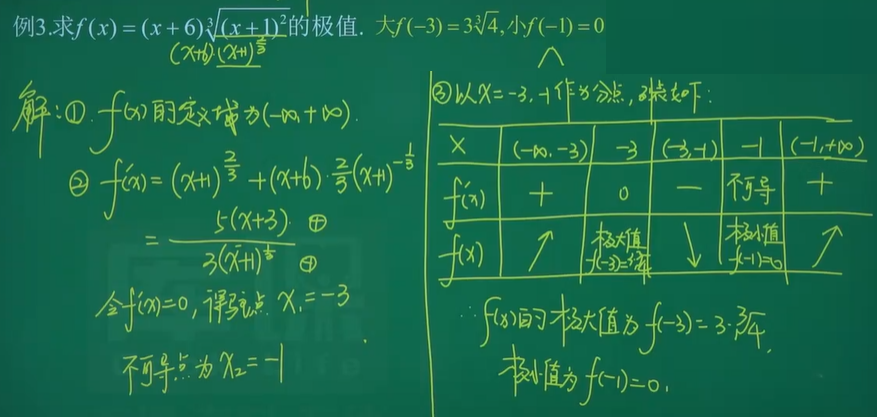 例3.求f(x)=(x+6)∛(x+1)²的极值. 大f(-3)=3∛4,小f(-1)=0
(x+6)·(x+1)^{2/3}
解:①. f(x)的定义域为(-∞,+∞).
② f'(x)=(x+1)^{2/3}+(x+6)·2/3(x+1)^{-1/3}
=5(x+3)/3(x+1)^{1/3}
令f'(x)=0,得驻点 x₁=-3
不可导点为x₂=-1
③以x=-3,-1作为分点,列表如下:
x (-∞,-3) -3 (-3,-1) -1 (-1,+∞)
f'(x) + 0 - 不可导 +
f(x) ↗ 极大值 f(-3)=3∛4 ↘ 极小值 f(-1)=0 ↗
∴f(x)的极大值为f(-3)=3·∛4,
极小值为f(-1)=0.